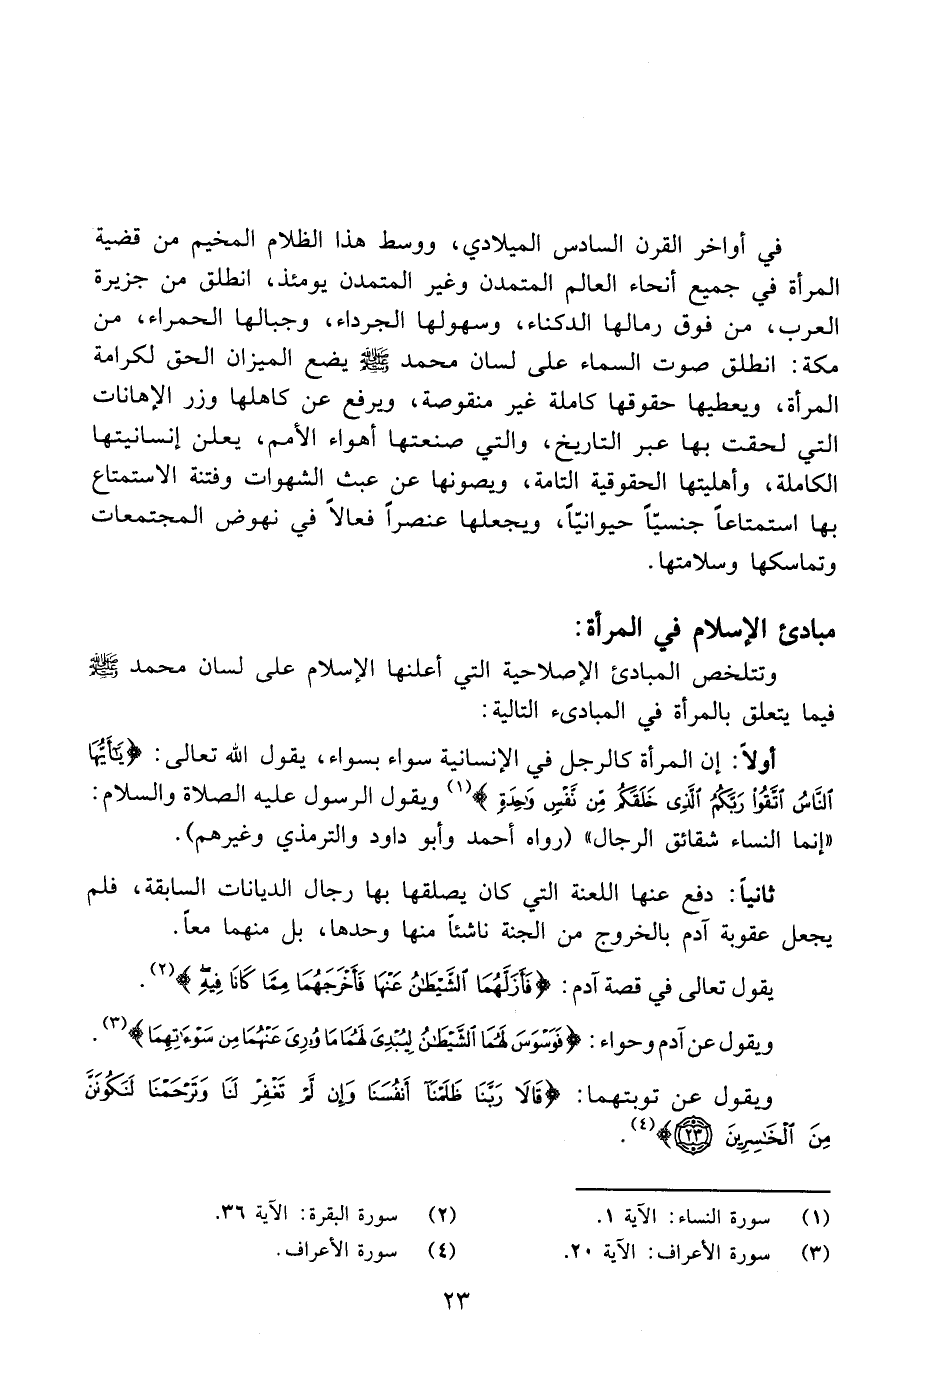 في أواخر القرن السادس الميلادي، ووسط هذا الظلام المخيم من قضية
المرأة في جميع أنحاء العالم المتمدن وغير المتمدن يومئذ، انطلق من جزيرة
العرب، من فوق رمالها الدكناء، وسهولها الجرداء، وجبالها الحمراء، من
مكة: انطلق صوت السماء على لسان محمد ﷺ يضع الميزان الحق لكرامة
المرأة، ويعطيها حقوقها كاملة غير منقوصة، ويرفع عن كاهلها وزر الإهانات
التي لحقت بها عبر التاريخ، والتي صنعتها أهواء الأمم، يعلن إنسانيتها
الكاملة، وأهليتها الحقوقية التامة، ويصونها عن عبث الشهوات وفتنة الاستمتاع
بها استمتاعاً جنسيّاً حيوانيّاً، ويجعلها عنصراً فعالاً في نهوض المجتمعات
وتماسكها وسلامتها.
مبادئ الإسلام في المرأة:
وتتلخص المبادئ الإصلاحية التي أعلنها الإسلام على لسان محمد ﷺ
فيما يتعلق بالمرأة في المبادىء التالية:
أولاً: إن المرأة كالرجل في الإنسانية سواء بسواء، يقول الله تعالى: ﴿يَٰٓأَيُّهَا
ٱلنَّاسُ ٱتَّقُوا۟ رَبَّكُمُ ٱلَّذِى خَلَقَكُم مِّن نَّفْسٍ وَٰحِدَةٍ﴾(١) ويقول الرسول عليه الصلاة والسلام:
«إنما النساء شقائق الرجال» (رواه أحمد وأبو داود والترمذي وغيرهم).
ثانياً: دفع عنها اللعنة التي كان يصلقها بها رجال الديانات السابقة، فلم
يجعل عقوبة آدم بالخروج من الجنة ناشئاً منها وحدها، بل منهما معاً.
يقول تعالى في قصة آدم: ﴿فَأَزَلَّهُمَا ٱلشَّيْطَٰنُ عَنْهَا فَأَخْرَجَهُمَا مِمَّا كَانَا فِيهِۖ﴾(٢).
ويقول عن آدم وحواء: ﴿فَوَسْوَسَ لَهُمَا ٱلشَّيْطَٰنُ لِيُبْدِىَ لَهُمَا مَا وُۥرِىَ عَنْهُمَا مِن سَوْءَٰتِهِمَا﴾(٣).
ويقول عن توبتهما: ﴿قَالَا رَبَّنَا ظَلَمْنَآ أَنفُسَنَا وَإِن لَّمْ تَغْفِرْ لَنَا وَتَرْحَمْنَا لَنَكُونَنَّ
مِنَ ٱلْخَٰسِرِينَ ٢٣﴾(٤).
(١) سورة النساء: الآية ١.
(٢) سورة البقرة: الآية ٣٦.
(٣) سورة الأعراف: الآية ٢٠.
(٤) سورة الأعراف.
٢٣